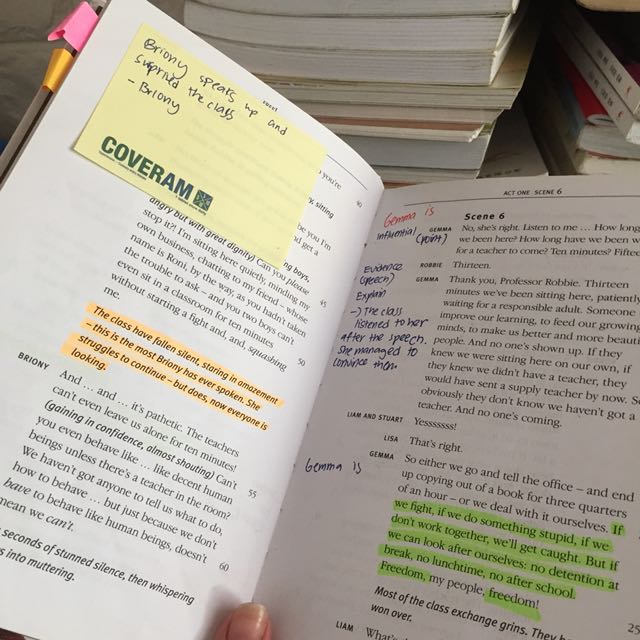 Briony speaks up and
suprised the class
- Briony
COVERAM
sweet
you're
90
sitting
boys,
be you I'm
angry but with great dignity) Can you please
and get a
stop it?! I'm sitting here quietly, minding my
own business, chatting to my friend – whose
name is Roni, by the way, as you hadn't taken
the trouble to ask – and you two boys can't
even sit in a classroom for ten minutes
without starting a fight and, and, squashing
me.
45
50
The class have fallen silent, staring in amazement
– this is the most Briony has ever spoken. She
struggles to continue – but does, now everyone is
looking.
BRIONY And … and … it's pathetic. The teachers
can't even leave us alone for ten minutes!
(gaining in confidence, almost shouting) Can't
you even behave like … like decent human
beings unless there's a teacher in the room?
We haven't got anyone to tell us what to do,
how to behave … but just because we don't
have to behave like human beings, doesn't
mean we can't.
55
60
seconds of stunned silence, then whispering
s into muttering.
ACT ONE SCENE 6
Gemma is
influential
(point)
Evidence
(speech)
Explain
-) The class
listened to her
after the speech.
She managed to
convince them
Gemma is
Scene 6
GEMMA No, she's right. Listen to me … How long
we been here? How long have we been w
for a teacher to come? Ten minutes? Fiftee
ROBBIE Thirteen.
GEMMA Thank you, Professor Robbie. Thirteen
minutes we've been sitting here, patiently
waiting for a responsible adult. Someone
improve our learning, to feed our growing
minds, to make us better and more beauti
people. And no one's shown up. If they
knew we were sitting here on our own, if
they knew we didn't have a teacher, they
would have sent a supply teacher by now. So
obviously they don't know we haven't got a
teacher. And no one's coming.
LIAM AND STUART Yesssssss!
LISA That's right.
GEMMA So either we go and tell the office – and end
up copying out of a book for three quarters
of an hour – or we deal with it ourselves. If
we fight, if we do something stupid, if we
don't work together, we'll get caught. But if
we can look after ourselves: no detention at
break, no lunchtime, no after school.
Freedom, my people, freedom!
Most of the class exchange grins. They h
won over.
25
LIAM What's